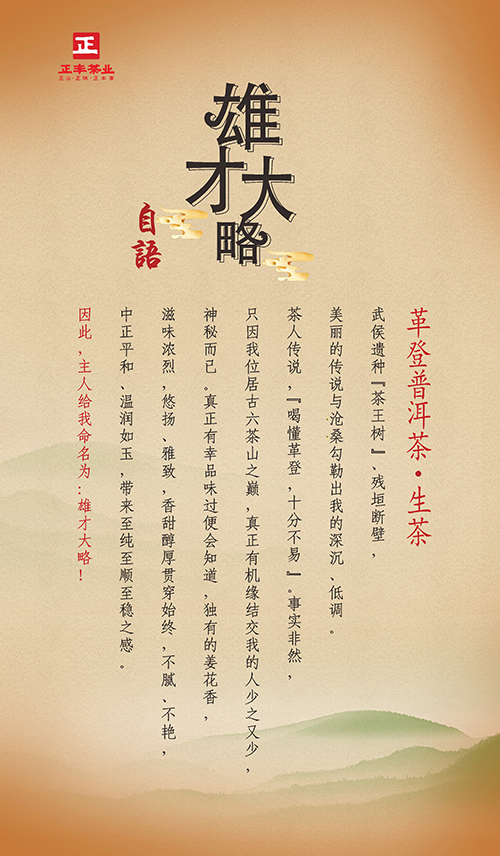 正
正丰茶业
正山·正味·正本事
雄才大略
自語
革登普洱茶·生茶
武侯遗种『茶王树』、残垣断壁，
美丽的传说与沧桑勾勒出我的深沉、低调。
茶人传说，『喝懂革登，十分不易』。事实非然，
只因我位居古六茶山之巅，真正有机缘结交我的人少之又少，
神秘而已。真正有幸品味过便会知道，独有的姜花香，
滋味浓烈，悠扬、雅致，香甜醇厚贯穿始终，不腻、不艳，
中正平和、温润如玉，带来至纯至顺至稳之感。
因此，主人给我命名为：雄才大略！